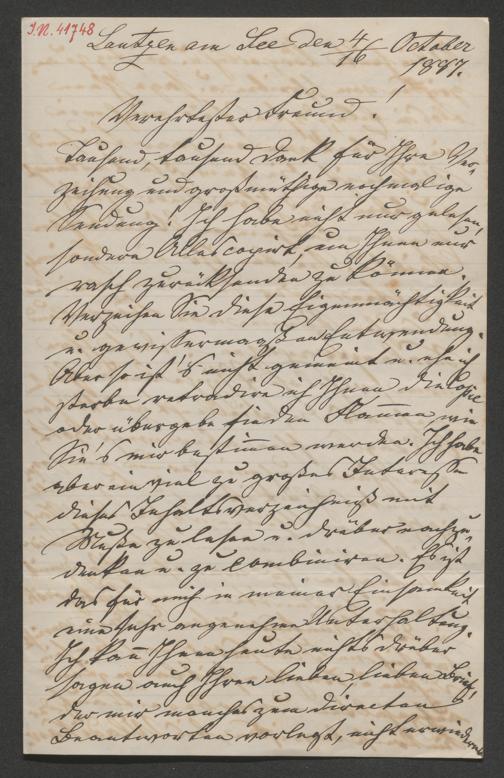 I.N. 41748
Lautzen am See den 4/16 October
1897.
Verehrtester Freund!
Tausend, tausend Dank für Ihre Ver-
zeihung und großmüthige nochmalige
Sendung! Ich habe nicht nur gelesen,
sondern Alles copirt, um Ihnen nur
rasch zurücksenden zu können.
Verzeihen Sie diese Eigenmächtigkeit
u. gewissermaßen Entwendung.
Aber so ist's nicht gemeint u. ehe ich
sterbe retradire ich Ihnen die Copie
oder übergebe sie den Flammen wie
Sie's mir bestimmen werden. Ich habe
aber ein viel zu großes Interesse
dieses Inhaltsverzeichniß mit
Muße zu lesen u. drüber nachzu-
denken u. zu combiniren. Es ist
das für mich in meiner Einsamkeit
eine sehr angenehme Unterhaltung.
Ich kann Ihnen heute nichts drüber
sagen auch Ihren lieben lieben Brief,
der mir manches zum directen
Beantworten vorlegt, nicht erwiedern